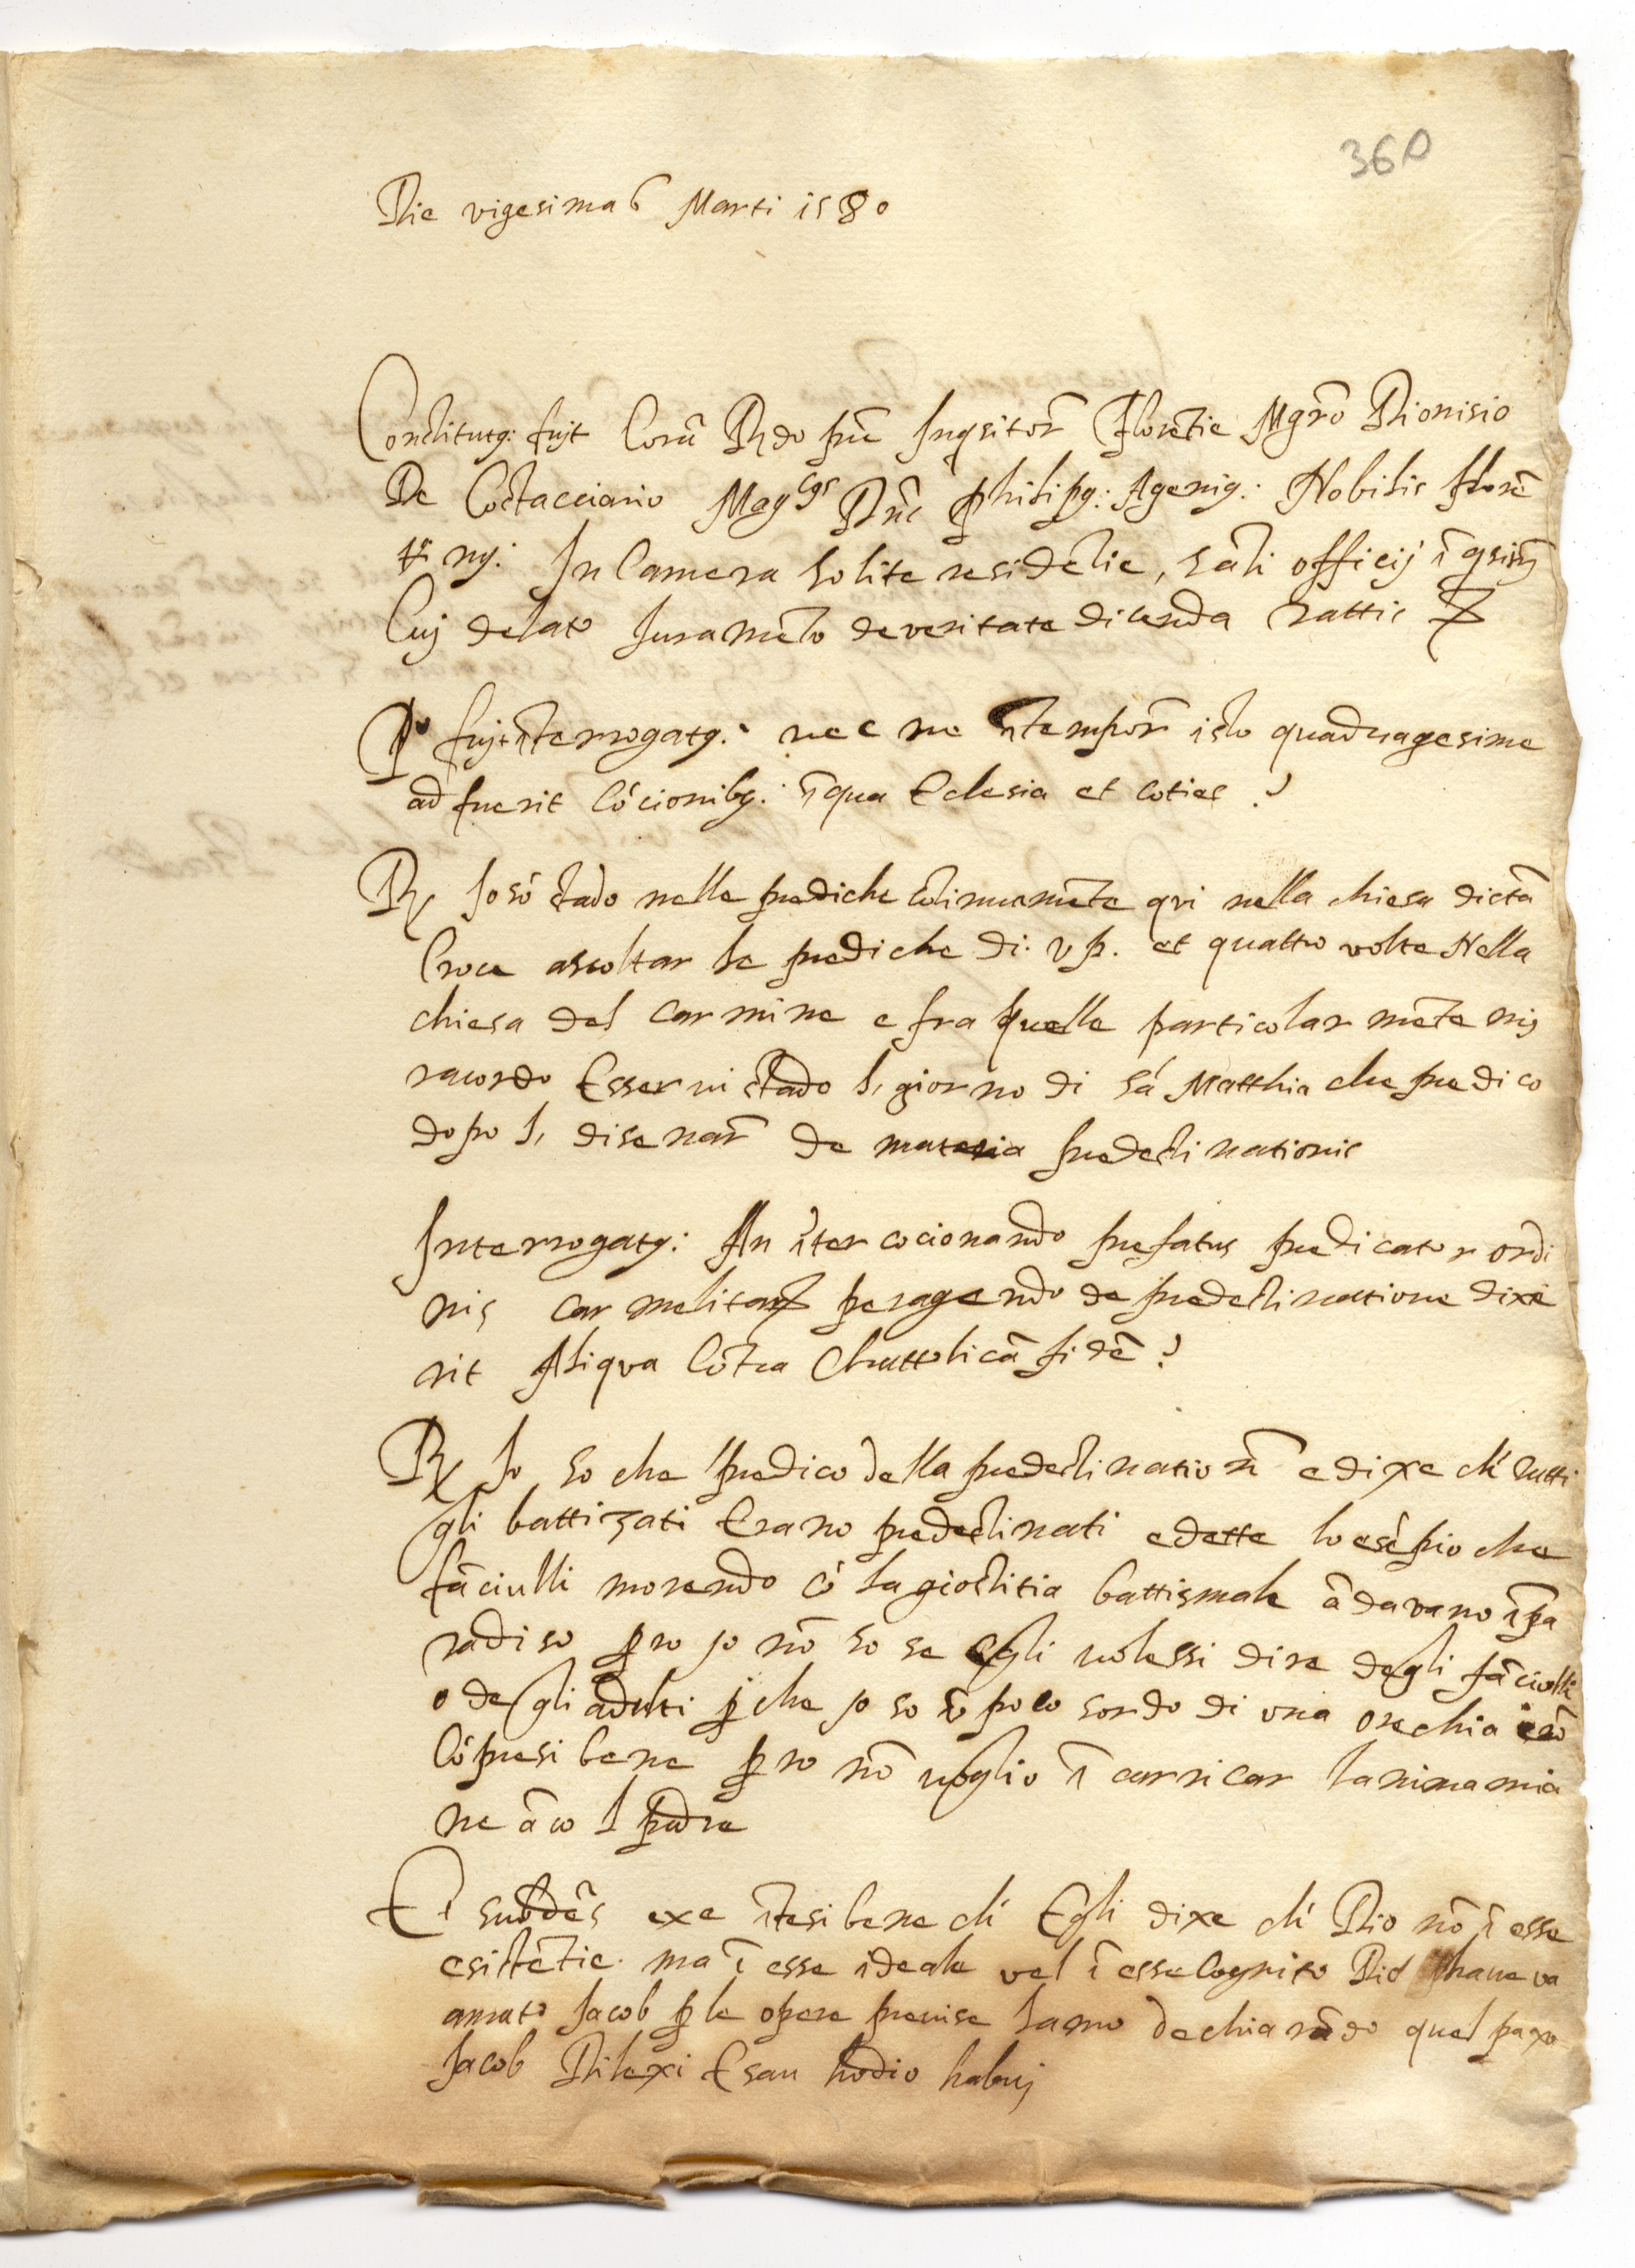 360
Die vigesima 6 Marti 1580
Constitutq: fujt Corā Rdo prē Inqsitor̄ Florētie Mgrō Dionisio
De Costacciario Magcus Dnſ philipq: Ageniq: Nobilis florē
tinq: In Camera solite residētie, sāti officij ī qsitiōis
Cuj delato Juramēto de veritate dicenda tattis
Po fujt īterrogatq: nec ne ītempor̄ isto quadragesime
ad fuerit Cócionibq: īqua Eclesia et coties ?
R Jo só stado nelle prediche cōtinuamēte qvi nella chiesa di stā
Croce ascoltar le prediche di v p. et quattro volte Nella
chiesa del Carmine e fra quelle particolar mēte mi
racordo Esser vi stado l giorno di Sá Matthia che predico
dopo l, disenar̄ de materia predestinationis
Interrogatq: An īter cōcionando prefatus predicator ordi
nis Carmelitar peragendo de predestinatione dixe
rit Aliqva Cōtra Chattolicā fidē ?
R Jo so che l predico della predestination̄ e dixe ch́ tutti
gli battizati Erano predestinati e dette lo esēpio che
fāciulli morendo có la giostitia battismale ādavano ī pa
radiso pro jo nō so se Egli volessi dire degli fāciulli
o degli adulti p che jo so ū poco sordo di una orechia e nō
Cópresi bene pro nō voglio ī carricar lanima mia
ne āco l padre
Et subdēs exe ītesi bene ch́ Egli dixe ch́ Dio nō ī esse
esistētie ma ī esse ideale vel ī esse Cognito Dio haveva
amato Jacob p le opere previse lano dechiarādo quel paxo
Jacob Dilexi Esau hodio habuj